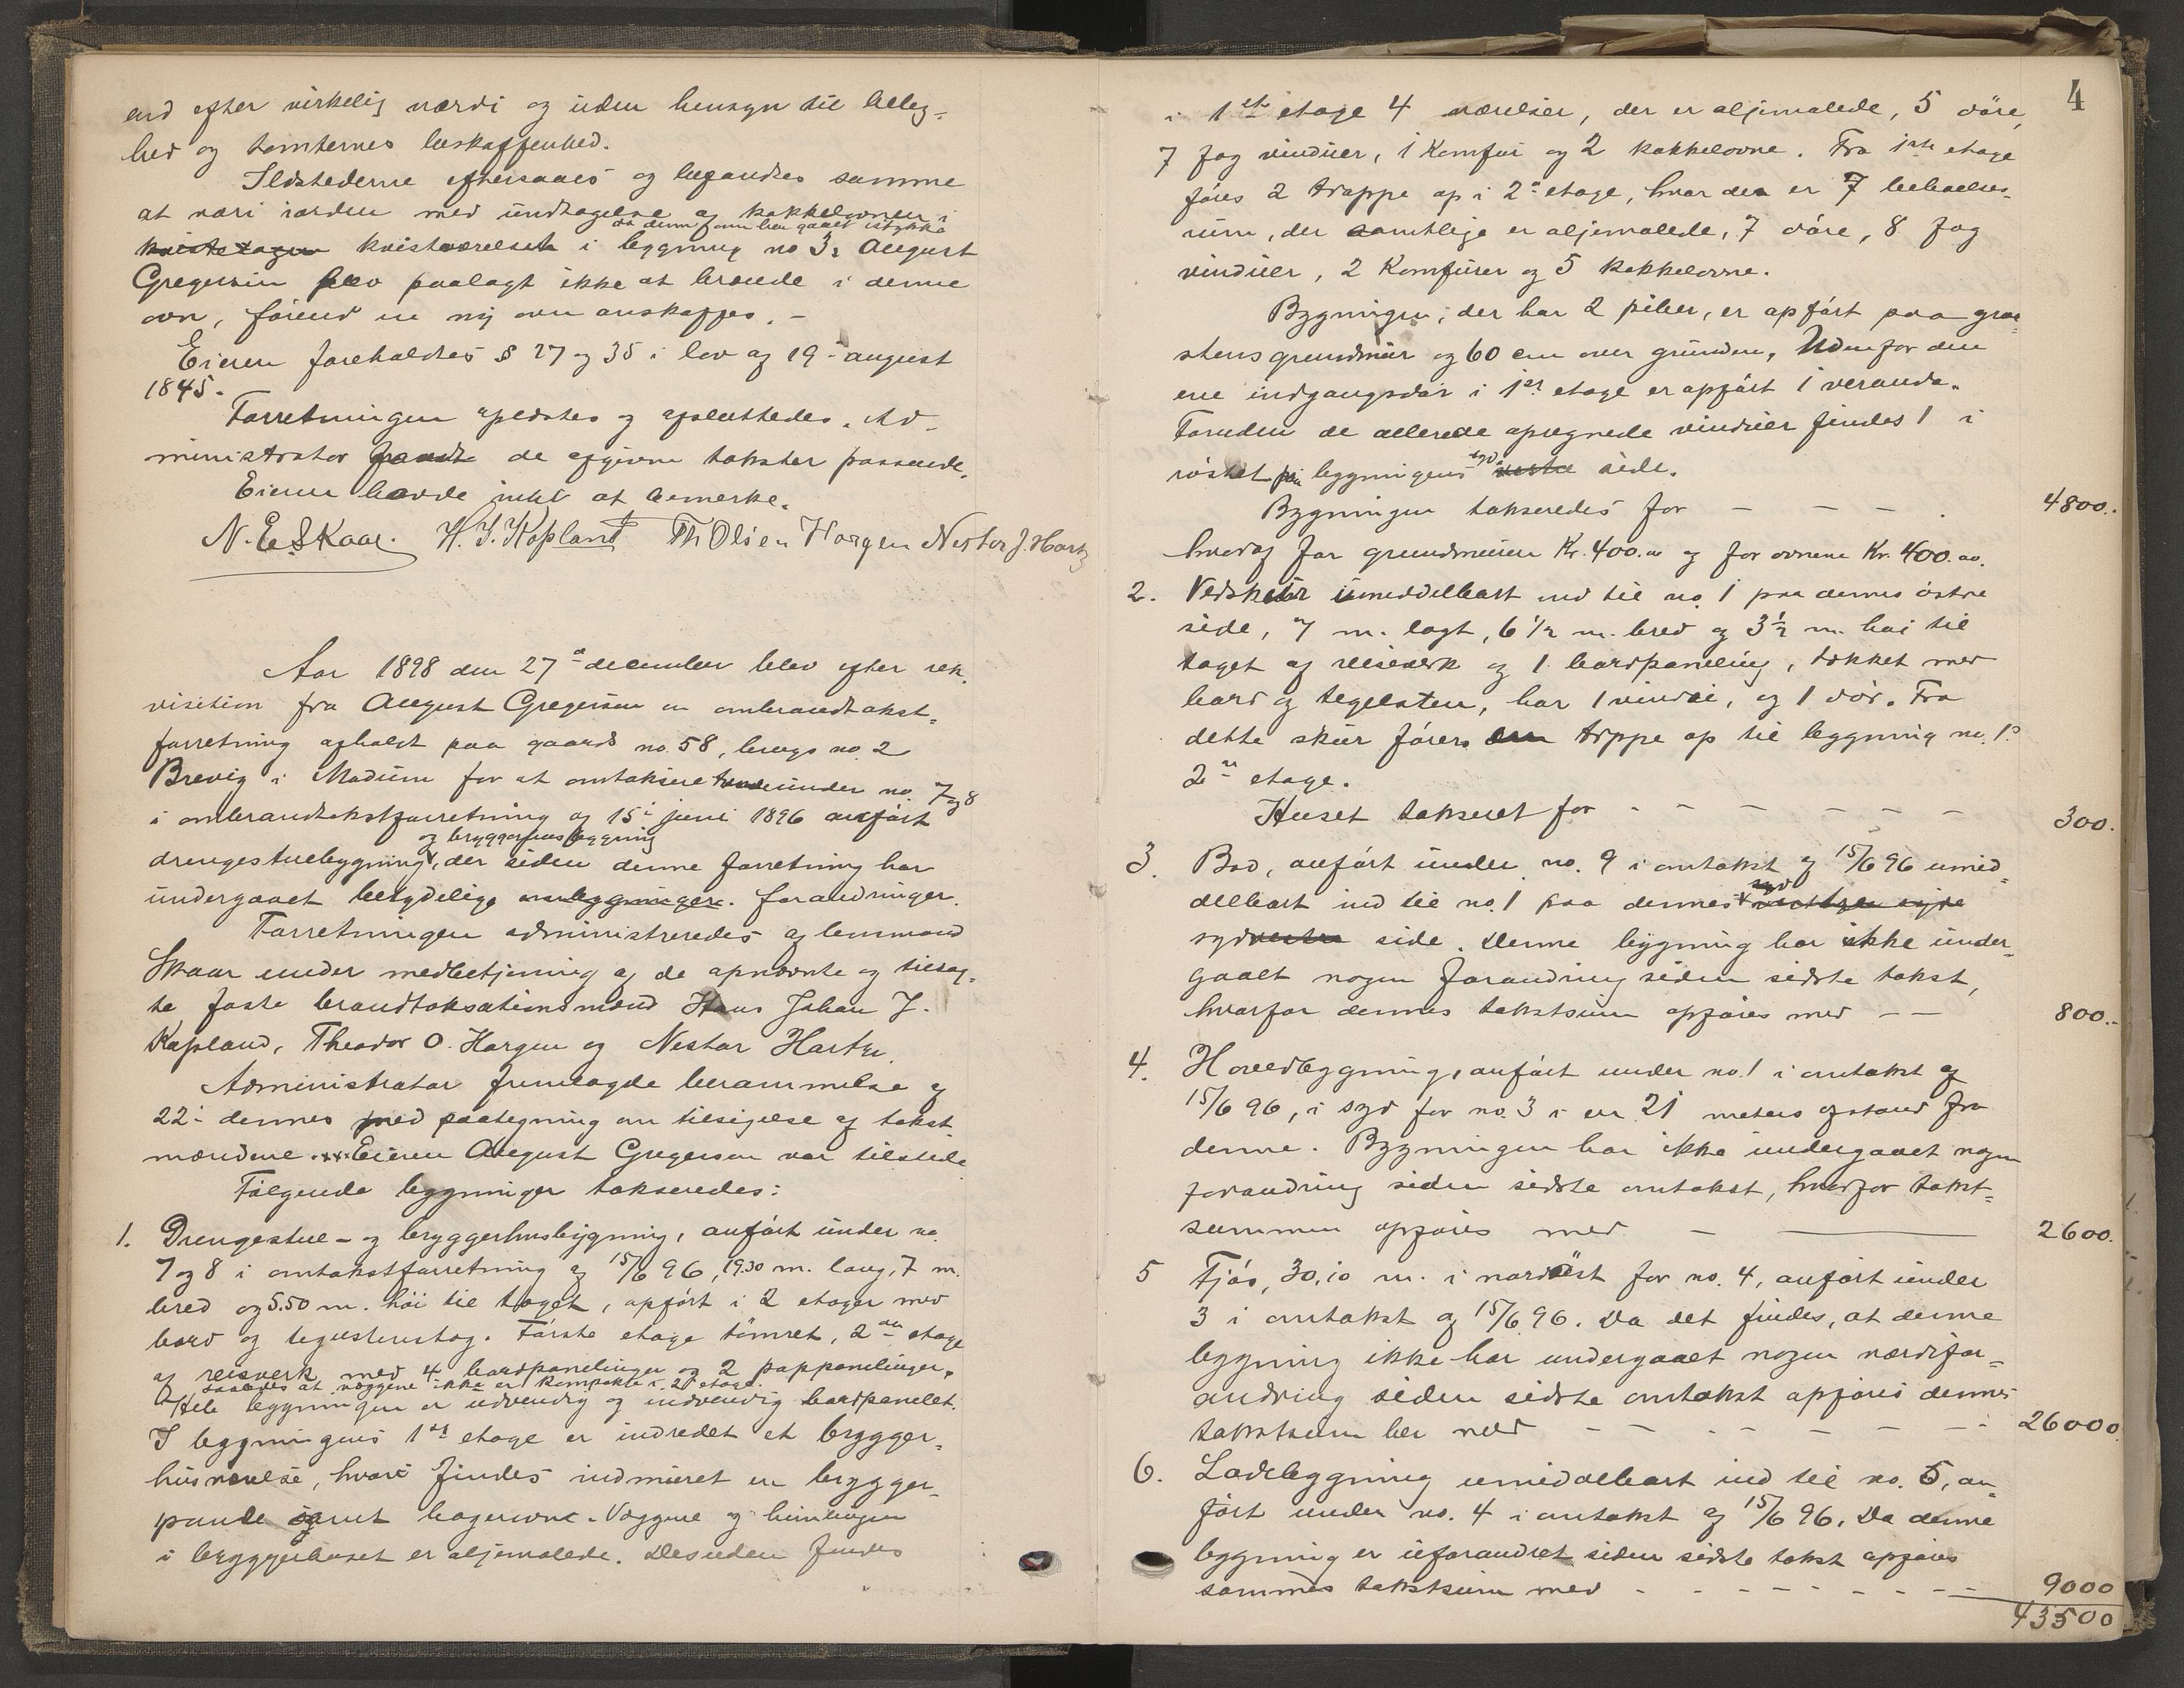 end efter virkelig værdi og uden hensyn til beleg-
hed og tomternes beskaffenhed.
Ildstederne eftersaaes og befandtes samme
at være i orden med undtagelse af kakkelovnen i
da denne ovn har gaaet istykke
kvistetagen kvistværelset i bygning no 3, August
Gregersen blev paalagt ikke at brænde i denne
ovn, förend en ny ovn anskaffes. -
Eieren foreholdtes § 27 og 35 i lov af 19de august
1845.
Forretningen oplæstes og afsluttedes. Ad-
ministrator fandt de afgivne takster passende.
Eieren havde intet at bemerke.
N. E. Skaar. H. J. Kopland Th Olsen Horgen Nestor J. Hartz
Aar 1898 den 27de december blev efter rek-
visition fra August Gregersen en ombrandtakst-
forretning afholdt paa gaards no. 58, brugs no. 2
Brevig i Modum for at omtaksere under no. 7 og 8
i ombrandtakstforretning af 15de juni 1896 anfört
og bryggerhusbygning
drengestuebygning, der siden denne forretning har
undergaaet betydelige ombygninger. forandringer.
Forretningen administreredes af lensmand
Skaar under medbetjening af de opnævnte og tilsag-
te faste brandtaksationsmænd Hans Johan J.
Kopland, Theodor O. Horgen og Nestor Hartz.
Administrator fremlagde berammelse af
22de dennes med paategning om tilsigelse af takst-
mændene. Eieren August Gregersen var tilstede
Fölgende bygninger takseredes:
1. Drengestue- og bryggerhusbygning, anfört under no.
7 og 8 i omtakstforretning af 15/6 96, 19.30 m. lang, 7 m.
bred og 5.50 m. höi til taget, opfört i 2 etager med
bord og tegelstenstag. Förste etage tömret, 2den etage
af reisverk med 4 bordpanelinger og 2 pappanelinger,
saaledes at væggene ikke er kompakte i 2 etage.
Hele bygningen er udvendig og indvendig bordpanelet.
I bygningens 1ste etage er indredet et brygger-
husværelse, hvori findes indmuret en brygger-
pande samt bagerovn. Væggene og himlingen
i bryggerhuset er oljemalede. Desuden findes
4
i 1ste etage 4 værelser, der er oljemalede, 5 döre,
7 fag vinduer, 1 Komfur og 2 kakkelovne. Fra 1ste etage
föres 2 trappe op i 2den etage, hvor der er 7 beboelses-
rum, der samtlige er oljemalede, 7 döre, 8 fag
vinduer, 2 Komfurer og 5 kakkelovne.
Bygningen, der har 2 piber, er opfört paa graa-
stensgrundmur og 60 cm over grunden. Udenfor den
ene indgangsdör i 1ste etage er opfört 1 veranda.
Foruden de allerede opregnede vinduer findes 1 i
syd-
röstet paa bygningens vestre side.
Bygningen takseredes for - - - . 4800.
hvoraf for grundmuren Kr. 400.00 og for ovnene Kr. 400.00.
2. Vedskur umiddelbart ind til no. 1 paa dennes östre
side, 7 m. lagt, 6 1/2 m. bred og 3 1/2 m. höi til
taget af reisverk og 1 bordpaneling, tækket med
bord og tegelsten, har 1 vindu, og 1 dör. Fra
dette skur förer en trappe op til bygning no. 1s
2den etage.
Huset takseret for - - - - - - 300.
3. Bod, anfört under no. 9 i omtakst af 15/6 96 umid-
syd
delbart ind til no. 1 paa dennes
sydvestre side. Denne bygning har ikke under-
gaaet nogen forandring siden sidste takst,
hvorfor dennes takstsum opföres med - - 800.-
4. Hovedbygning, anfört under no. 1 i omtakst af
15/6 96, i syd for no. 3 i en 21 meters afstand fra
denne. Bygningen har ikke undergaaet nogen
forandring siden sidste omtakst, hvorfor takst-
summen opföres med - — 2600.
5 Fjös, 30,10 m. i nordöst for no. 4, anfört under
3 i omtakst af 15/6 96. Da det findes, at denne
bygning ikke har undergaaet nogen værdifor-
andring siden sidste omtakst opföres dennes
takstsum her med - - - - - - - 26000.
6. Ladebygning umiddelbart ind til no. 5, an-
fört under no. 4 i omtakst af 15/6 96. Da denne
bygning er uforandret siden sidste takst opföres
sammes takstsum med - - - - - - - - 9000
43500